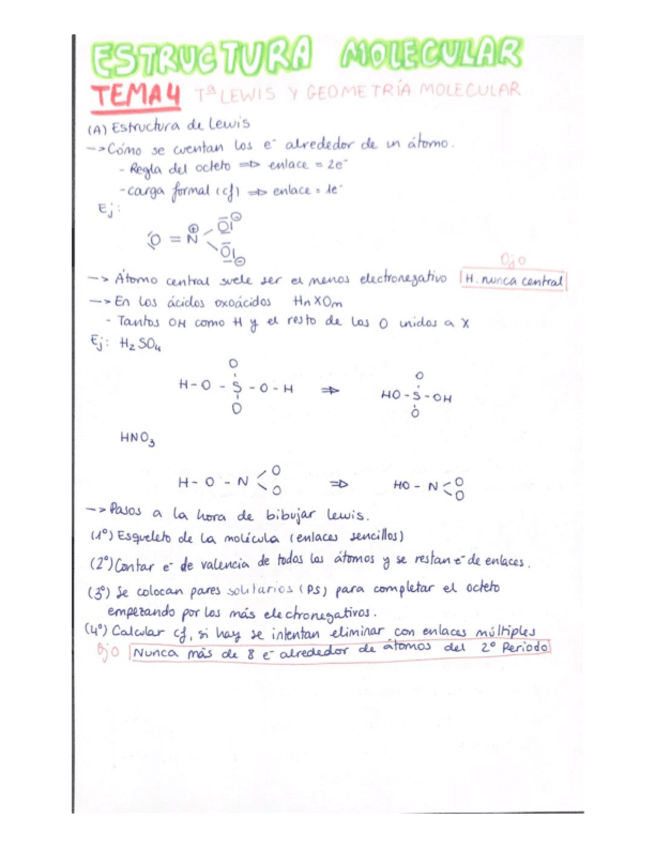 ESTRUCTURA MOLECULAR
TEMA 4 Tª LEWIS Y GEOMETRÍA MOLECULAR
(A) Estructura de Lewis
-> Cómo se cuentan los e⁻ alrededor de un átomo.
- Regla del octeto => enlace = 2e⁻
- carga formal (cf) => enlace = 1e⁻
Ej:
O = N ⊕ O ⊖ O ⊖
Ojo
-> Átomo central suele ser el menos electronegativo H. nunca central
-> En los ácidos oxoácidos HnXOm
- Tantos OH como H y el resto de los O unidos a X
Ej: H₂SO₄
O O
H-O-S-O-H => HO-S-OH
O O
HNO₃
H-O-N O O => HO-N O O
-> Pasos a la hora de bibujar lewis.
(1º) Esqueleto de la molécula (enlaces sencillos)
(2º) Contar e⁻ de valencia de todos los átomos y se restan e⁻ de enlaces.
(3º) Se colocan pares solitarios (PS) para completar el octeto
empezando por los más electronegativos.
(4º) Calcular cf, si hay se intentan eliminar con enlaces múltiples
Ojo Nunca más de 8 e⁻ alrededor de átomos del 2º Periodo